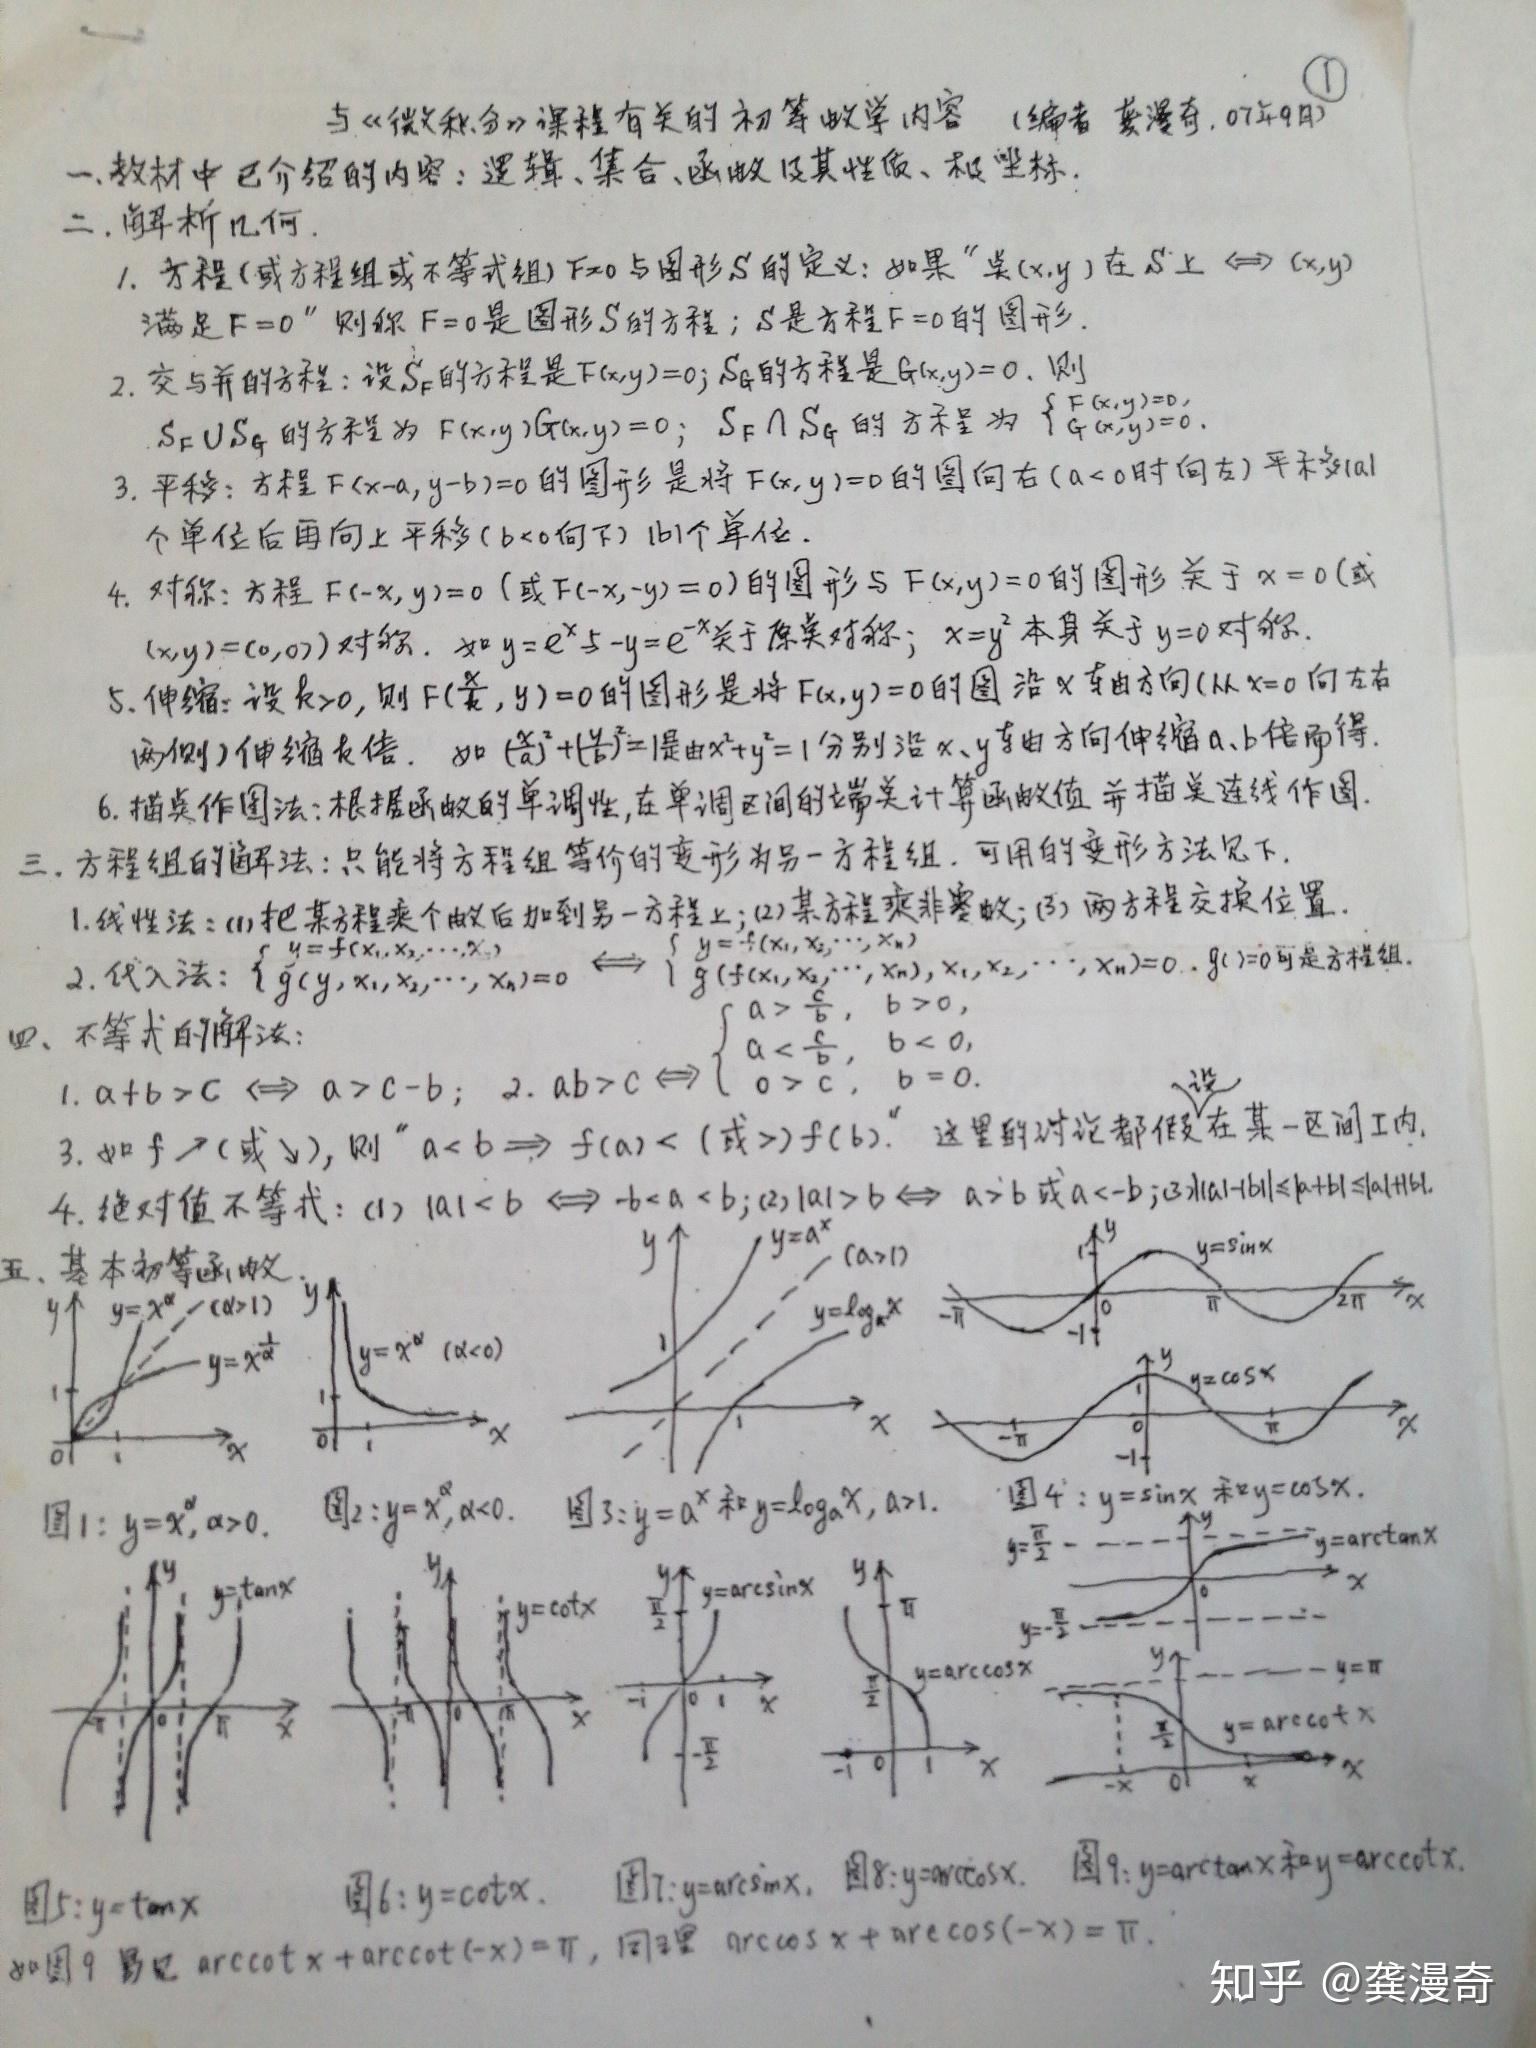 ①
与《微积分》课程有关的初等数学内容 (编者 龚漫奇. 07年9月)
一、教材中已介绍的内容：逻辑、集合、函数及其性质、极坐标.
二. 解析几何.
1. 方程(或方程组或不等式组) F=0与图形S的定义：如果"点(x,y)在S上 ⟺ (x,y)
满足F=0" 则称F=0是图形S的方程；S是方程F=0的图形.
2. 交与并的方程：设S_F的方程是F(x,y)=0; S_G的方程是G(x,y)=0. 则
S_F∪S_G的方程为 F(x,y)G(x,y)=0; S_F∩S_G的方程为 { F(x,y)=0, G(x,y)=0.
3. 平移：方程F(x-a, y-b)=0的图形是将F(x,y)=0的图向右(a<0时向左)平移|a|
个单位后再向上平移(b<0向下) |b|个单位.
4. 对称：方程F(-x,y)=0 (或F(-x,-y)=0)的图形与F(x,y)=0的图形关于x=0(或
(x,y)=(0,0))对称. 如y=e^x与-y=e^{-x}关于原点对称; x=y²本身关于y=0对称.
5. 伸缩：设k>0, 则F(x/k, y)=0的图形是将F(x,y)=0的图沿x轴方向(从x=0向左右
两侧)伸缩k倍. 如(x/a)²+(y/b)²=1是由x²+y²=1分别沿x、y轴方向伸缩a、b倍而得.
6. 描点作图法：根据函数的单调性,在单调区间的端点计算函数值并描点连线作图.
三. 方程组的解法：只能将方程组等价的变形为另一方程组. 可用的变形方法见下.
1. 线性法：(1)把某方程乘个数后加到另一方程上; (2)某方程乘非零数; (3)两方程交换位置.
2. 代入法：{ y=f(x₁,x₂,⋯,xₙ) g(y,x₁,x₂,⋯,xₙ)=0 ⟺ { y=f(x₁,x₂,⋯,xₙ) g(f(x₁,x₂,⋯,xₙ),x₁,x₂,⋯,xₙ)=0. g()=0可是方程组.
四、不等式的解法：
1. a+b>c ⟺ a>c-b; 2. ab>c ⟺ { a>c/b, b>0, a<c/b, b<0, 0>c, b=0.
3. 如f↗(或↘), 则"a<b ⟹ f(a)<(或>)f(b)." 这里的讨论都假设在某一区间I内.
4. 绝对值不等式：(1) |a|<b ⟺ -b<a<b; (2) |a|>b ⟺ a>b或a<-b; (3) ||a|-|b||≤|a+b|≤|a|+|b|.
五、基本初等函数.
y y=x^α (α>1) y=x^{1/α} 1 0 1 x
y y=x^α (α<0) 1 0 1 x
y y=a^x (a>1) y=logₐx 1 1 x
y 1 y=sinx -π 0 π 2π x -1
y 1 y=cosx -π 0 π x -1
图1: y=x^α, α>0.
图2: y=x^α, α<0.
图3: y=a^x和y=logₐx, a>1.
图4: y=sinx和y=cosx.
y y=tanx -π 0 π x
y y=cotx -π 0 π x
y π/2 y=arcsinx -1 0 1 x -π/2
y π π/2 y=arccosx -1 0 1 x
y=π/2 y y=arctanx 0 x y=-π/2
y y=π π/2 y=arccotx -x 0 x x
图5: y=tanx
图6: y=cotx.
图7: y=arcsinx.
图8: y=arccosx.
图9: y=arctanx和y=arccotx.
如图9易见 arccotx+arccot(-x)=π, 同理 arccosx+arccos(-x)=π.
知乎 @龚漫奇